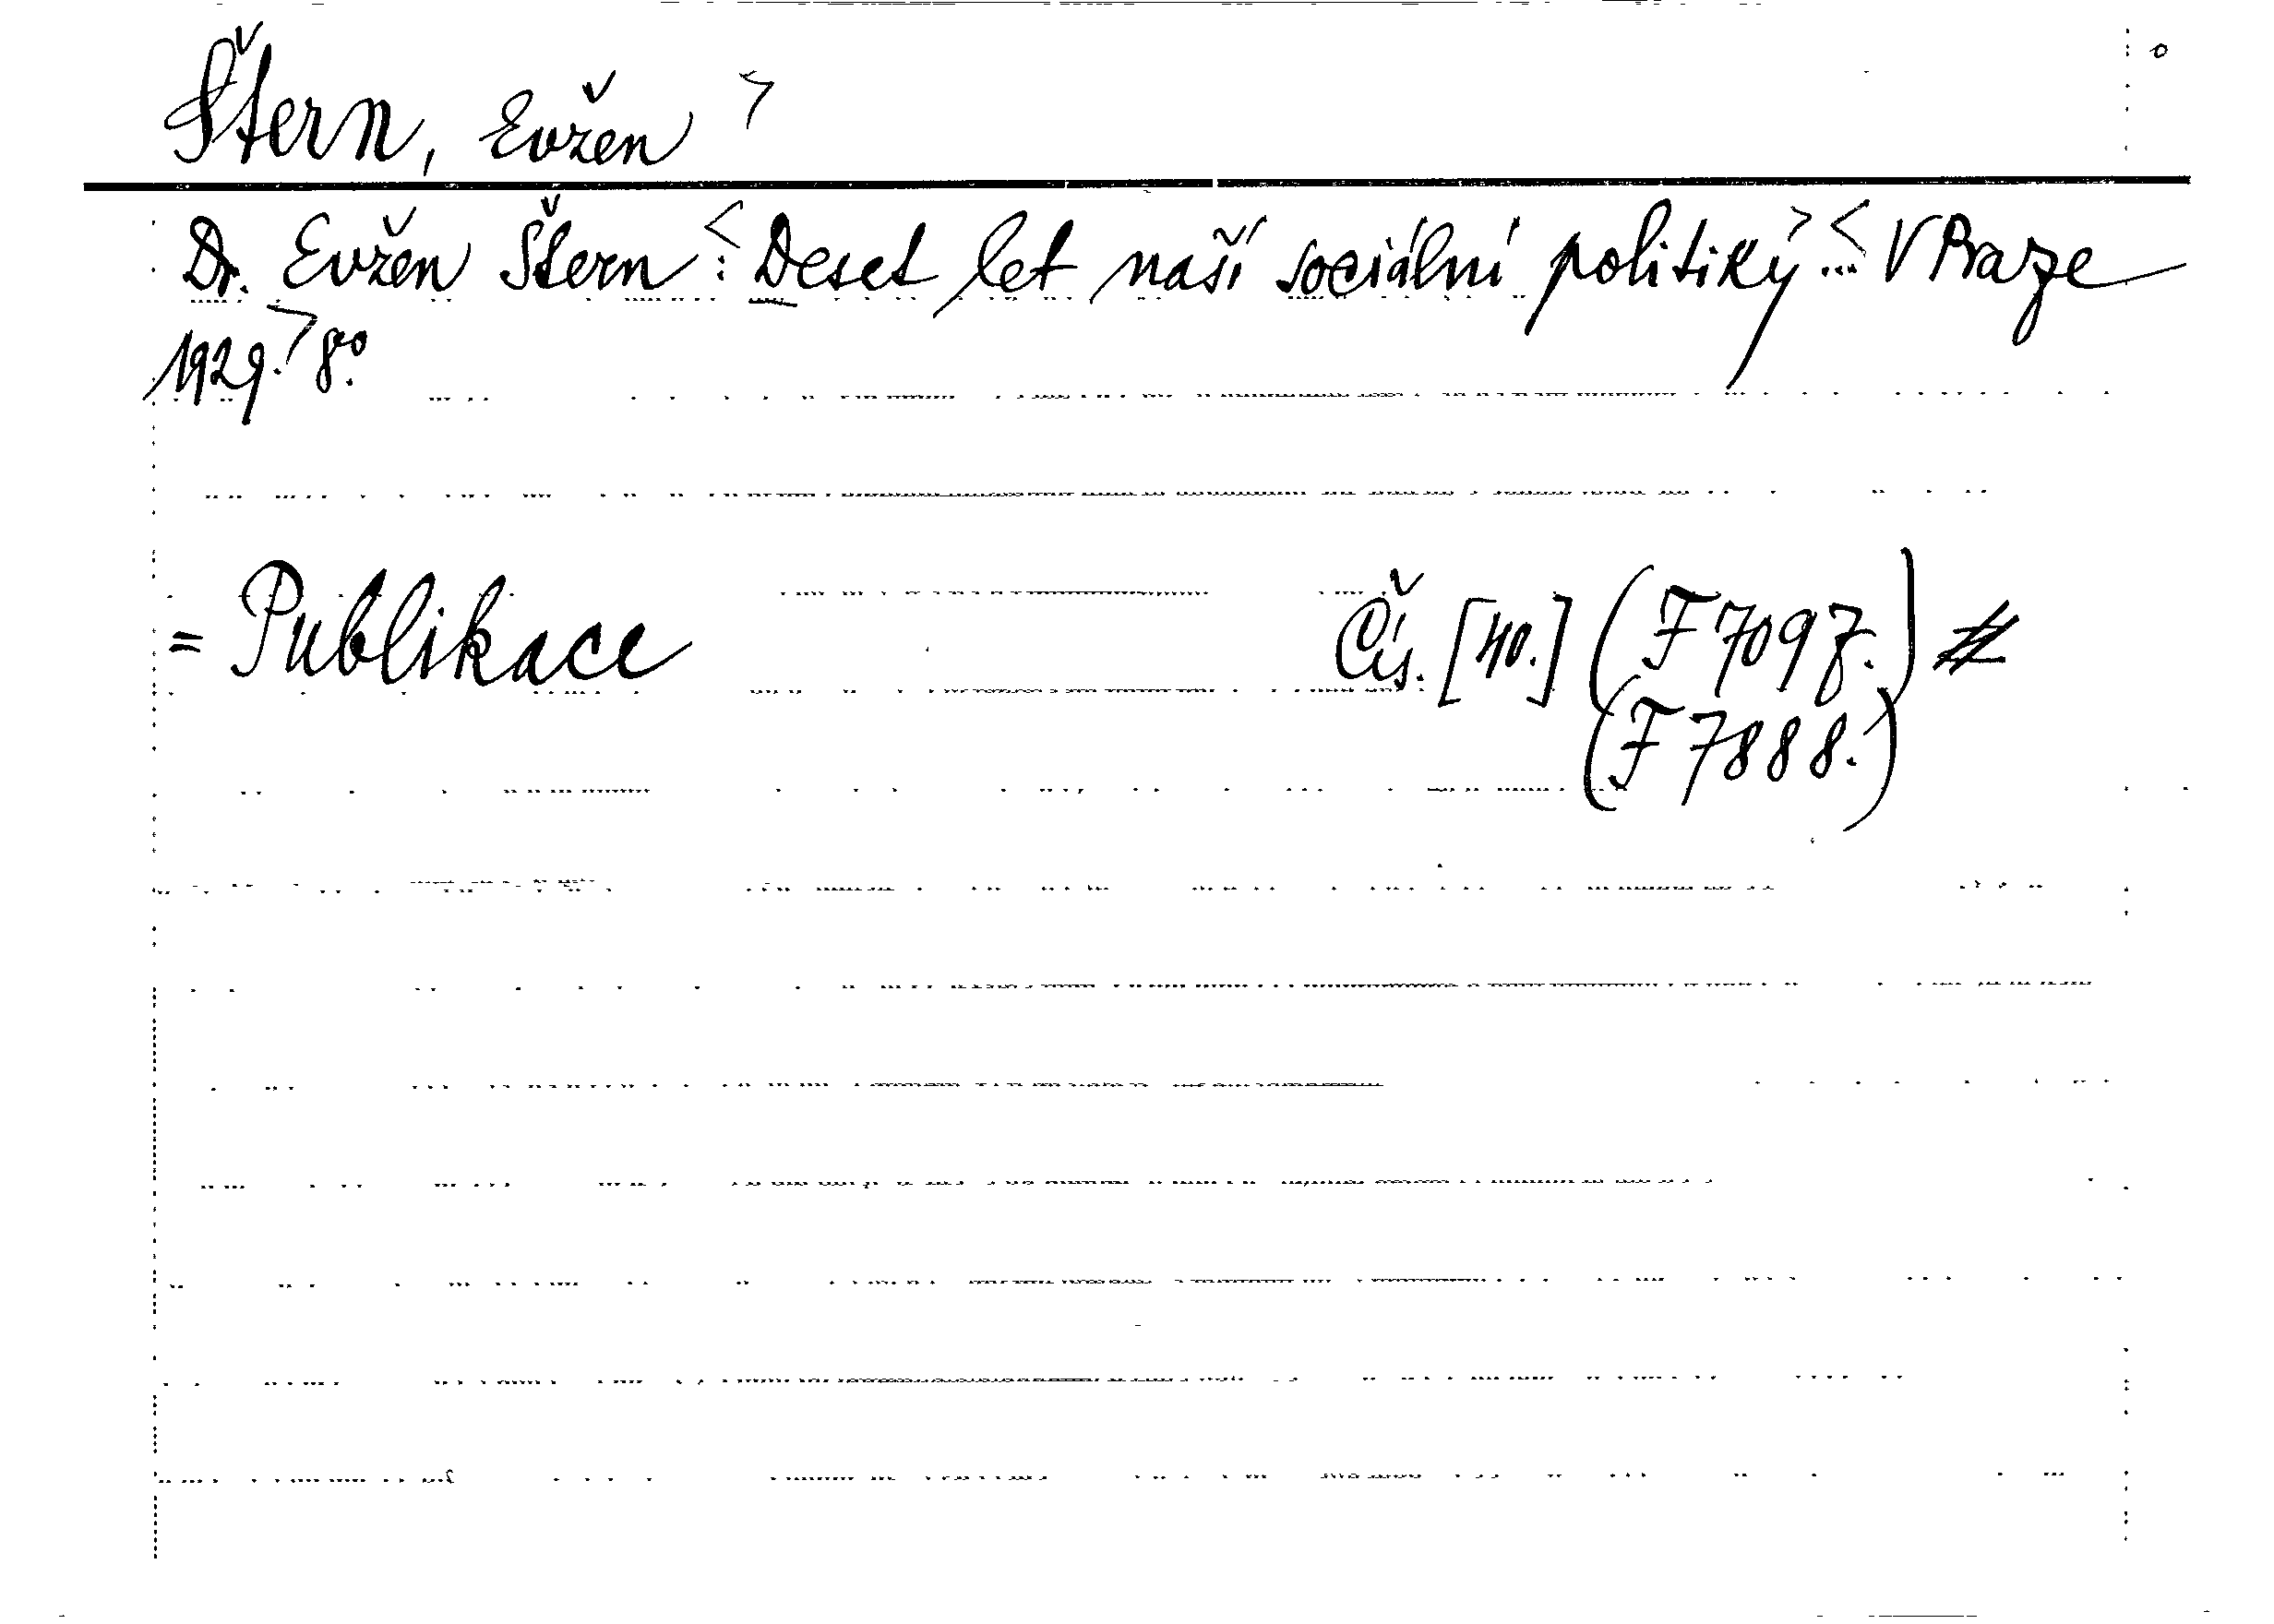 Štern, Evžen >
Dr. Evžen Štern <: Deset let naší sociální politiky > ... < V Praze
1929. > 8°.
= Publikace Čís. [40.] (F 7097.) #
(F 7888.)